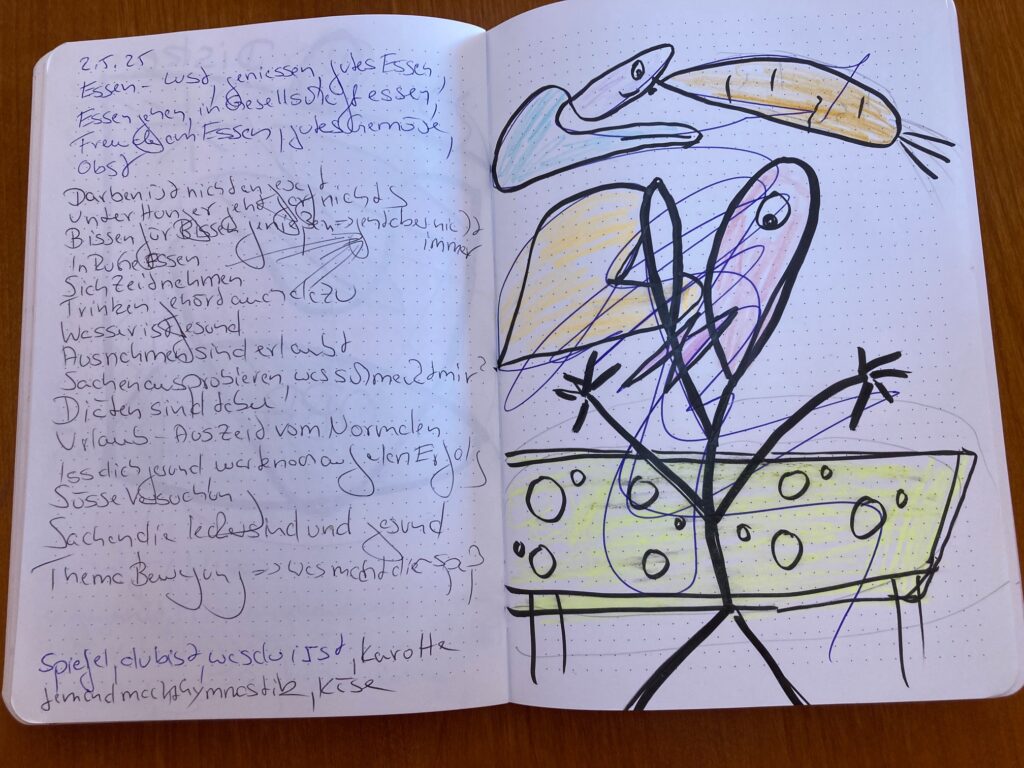 2.5.25
Essen - Lust, geniessen, gutes Essen,
Essen gehen, in Gesellschaft essen,
Freude am Essen, gutes Gemüse,
Obst
Darben ist nicht angesagt
Unter Hunger geht gar nichts
Bissen für Bissen genießen => geht aber nicht
immer
In Ruhe essen
Sich Zeit nehmen
Trinken gehört auch dazu
Wasser ist gesund
Ausnahmen sind erlaubt
Sachen ausprobieren, was schmeckt mir?
Diäten sind
Urlaub - Auszeit vom Normalen
Iss dich gesund
Süsse Versuchung
Sachen die lecker sind und gesund
Thema Bewegung => was macht dir Spaß?
Spiegel, du bist, was du isst, Karotte
jemand macht Gymnastik, Käse